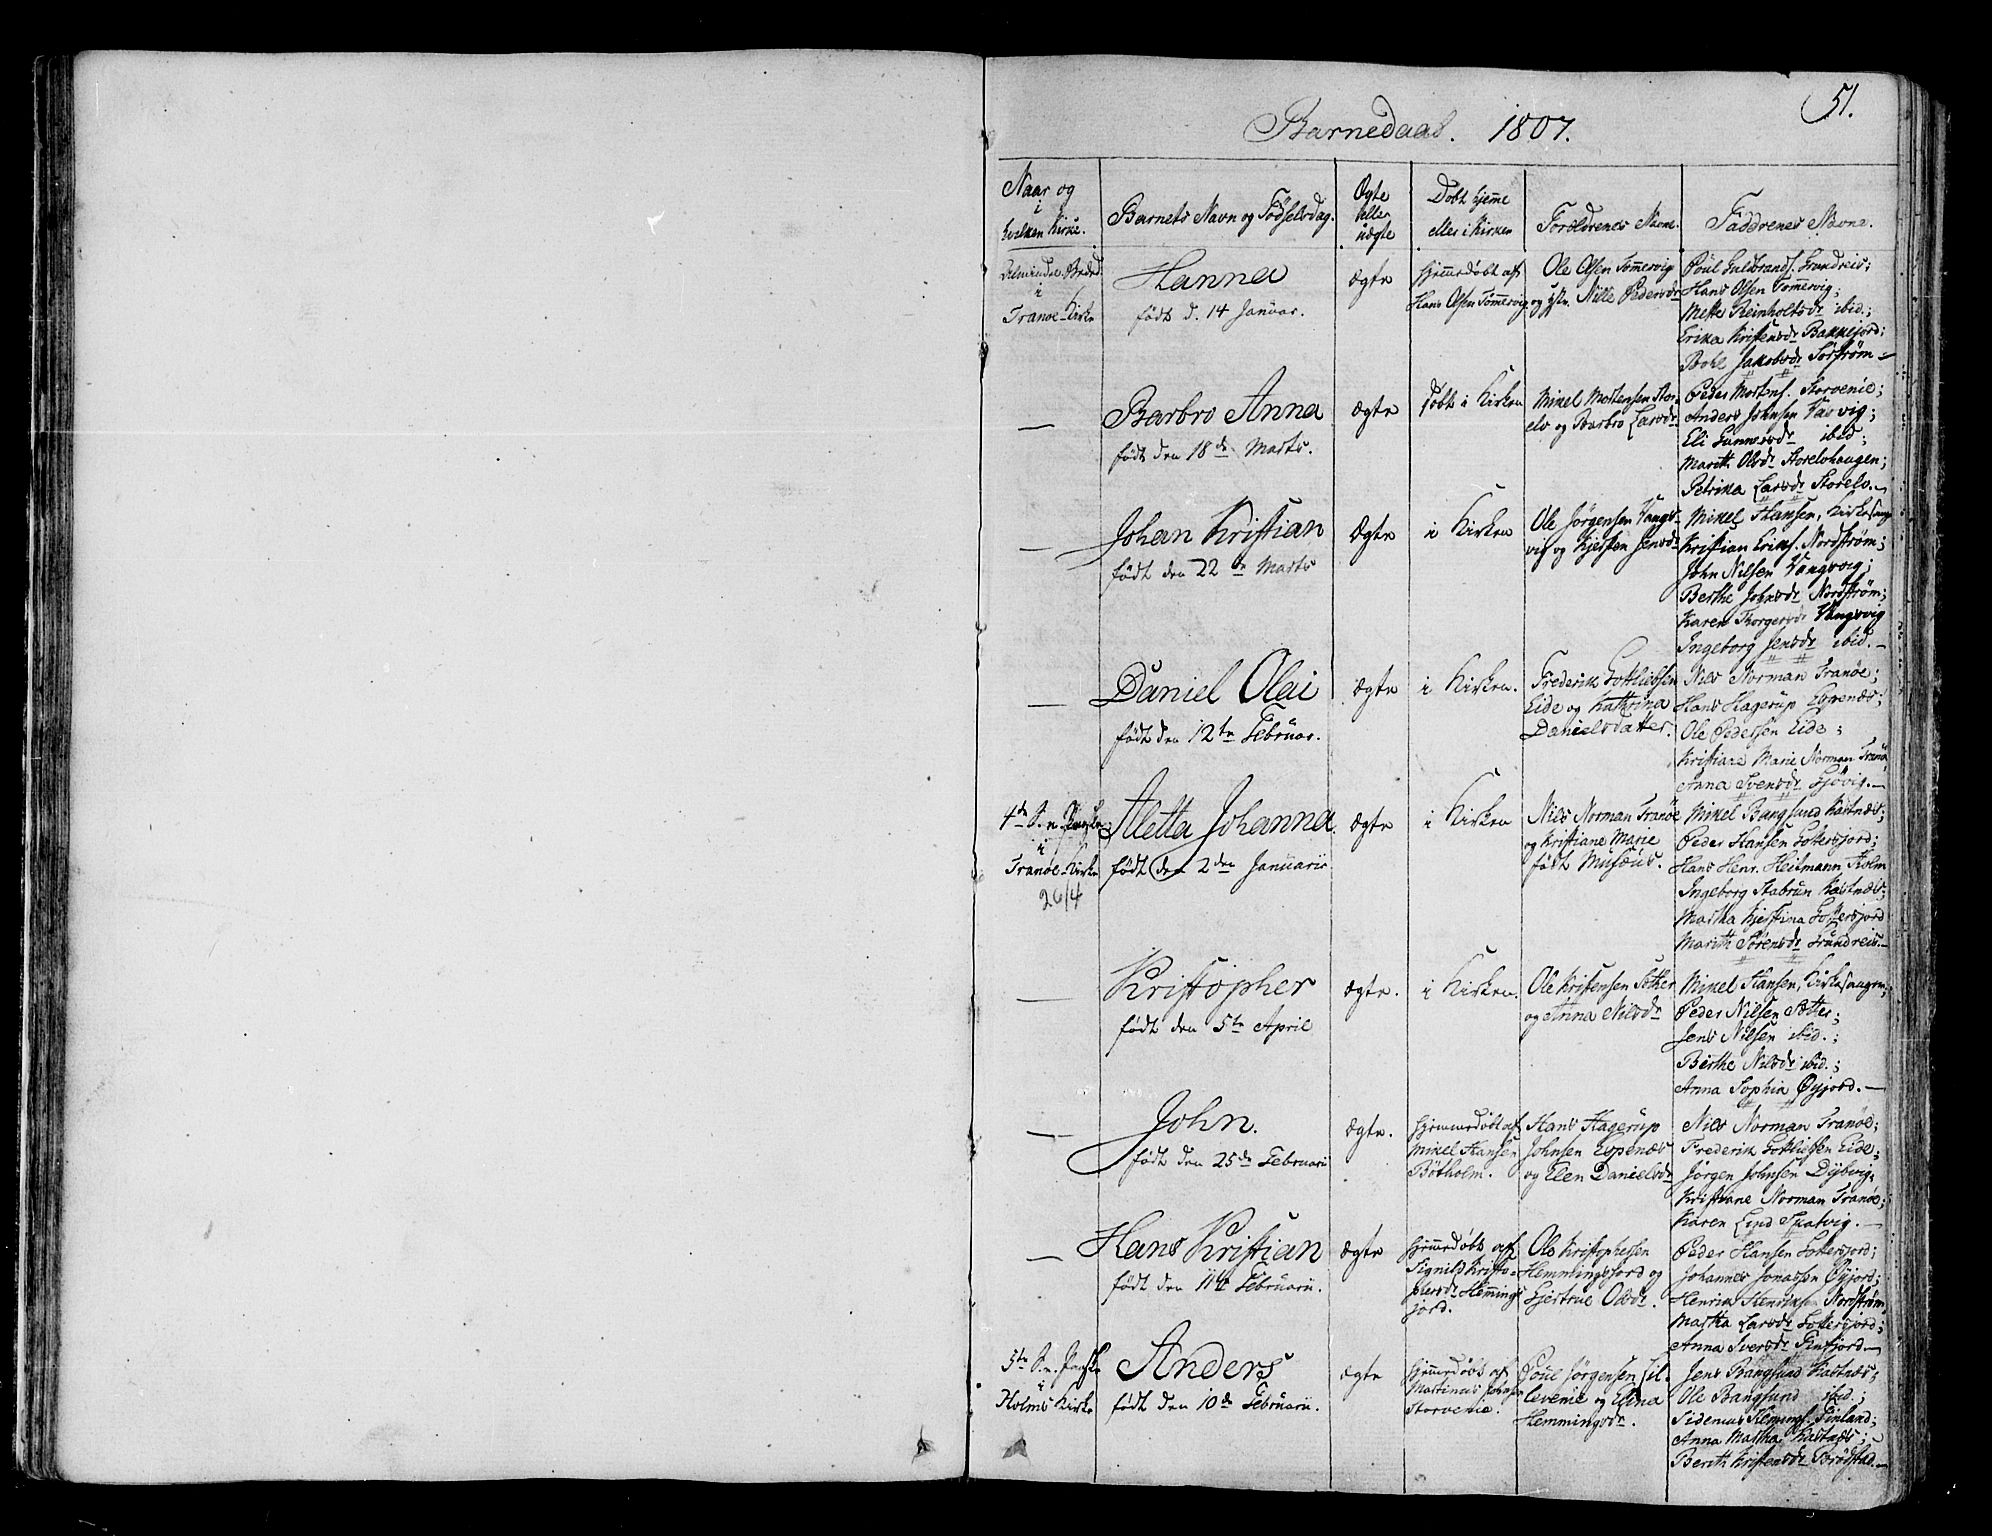 51.
Barnedaab. 1807.
Naar og
i
hvilken Kirke.
Barnets Navn og Fødselsdag.
Ægte
eller
uægte
Døbt hjem̄e
eller i Kirken
Forældrenes Navne.
Faddrenes Navne.
Almindel. Beded.
i
Tranøe-Kirke
Hanna
født d. 14 Januar.
ægte
hjemmedøbt af
Hans Olsen Tømervig
Ole Olsen Tømervig
og Hstr. Nille Pedersdr
Poul Guldbrands. Grundreis;
Hans Olsen Tømervig;
Mette Reinholtsdr ibid.;
Erika Kristensdr Bakkejord;
Bohl Jakobsdr Sørstrøm —
—
Barbro Anna
født den 18de Marts.
ægte
døbt i Kirken
Mikel Mortensen Stor-
elv og Barbro Larsdr
Peder Mortens. Storvenie;
Anders Johnsen Vasvig;
Eli Gunnersdr ibid;
Marith Olsdr Storelvhaugen;
Petrika Larsdr Storelv. —
—
Johan Kristian
født den 22de Marts
Ægte
i Kirken
Ole Jørgensen Vangs-
vig og Kjersten Jensdr
Mikel Hansen, Kirkesang
Kristian Eriks. Nordstrøm;
John Nilsen Vangsvig;
Berthe Johnsdr Nordstrøm;
Karen Thorgersdr Vangsvig
Ingeborg Jensdr ibid. —
—
Daniel Olai
født den 12te Februar.
ægte
i Kirken.
Frederik Gottliebsen
Eide og Kathrina
Danielsdatter.
Nils Norman Tranøe;
Hans Hagerup Espenæs;
Ole Pedersen Eide;
Kristiane Marie Norman Tranø
Anna Svensdr Gjøvig. —
4de S. n. Paaske
i
Tranøe-Kirke
26/4
Aletta Johanna
født den 2den Januarii
ægte
i Kirken
Nils Norman Tranøe
og Kristiane Marie
født Musæus.
Mikel Bangsund Kastnæs;
Peder Hansen Gottersjord;
Hans Henr. Heitmann Holm
Ingeborg Stabrun Kastnæs;
Martha Kjestina Gottersjord
Marith Sørensdr Grundreis. —
—
Kristopher
født den 5te April
ægte.
i Kirken.
Ole Kristensen Sæther
og Anna Nilsdr
Mikel Hansen, Kirkesanger;
Peder Nilsen Sætter;
Jens Nilsen ibid.;
Berthe Nilsdr ibid.;
Anna Sophia Øyjord. —
—
John.
født den 25de Februarii
ægte.
hjemmedøbt af
Mikel Hansen
Bøtholm.
Hans Hagerup
Johnsen Espenæs
og Elen Danielsdr
Nils Norman Tranøe;
Frederik Gottliebsen Eide;
Jørgen Johnsen Dybvig;
Kristiane Norman Tranøe;
Karen Lind Spatvig. —
—
Hans Kristian
født den 11te Februarii.
ægte
hjemedøbt af
Signild Kristo-
phersdr Hemmings
jord.
Ole Kristophersen
Hemmingsjord og
Gjertrue Olsdr.
Peder Hansen Gottersjord;
Johannes Jonassen Øyjord;
Henrik Henriksen Nordstrøm,
Martha Larsdr Gottersjord;
Anna Iversdr Finfjord —
5te S. n. Paaske
i
Holms Kirke
Anders
født den 10de Februarii.
ægte
hjemmedøbt af
Martinus Johns.
Storvenie.
Poul Jørgensen Lil-
levenie og Elina
Hemmingsdr.
Jens Bangsund Kastnæs;
Ole Bangsund ibid.;
Sidenius Heming. Finland;
Anna Martha Kastnæs;
Berith Kristensdr Brøstad. —